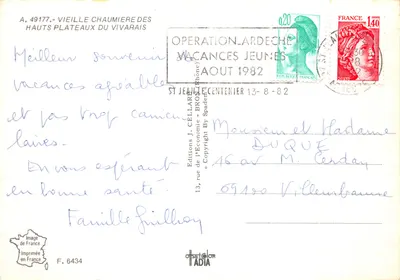 A. 49177.- VIEILLE CHAUMIERE DES
HAUTS PLATEAUX DU VIVARAIS
Meilleur souvenir
vacances agréables
et pas trop canicu
laires.
En vous espérant
en bonne santé
Famille
Editions J. CELLARD
13, rue de l'Economie - BRON (Rhône)
Copyright by
OPERATION ARDECHE
VACANCES JEUNES
AOUT 1982
ST JEAN LE CENTENIER 13-8-82
0,20
FRANCE
1,40
Monsieur et Madame
DUQUE
16 av M. Cerdan
69100 Villeurbanne
Image
de France
Imprimée
en France
F. 6434